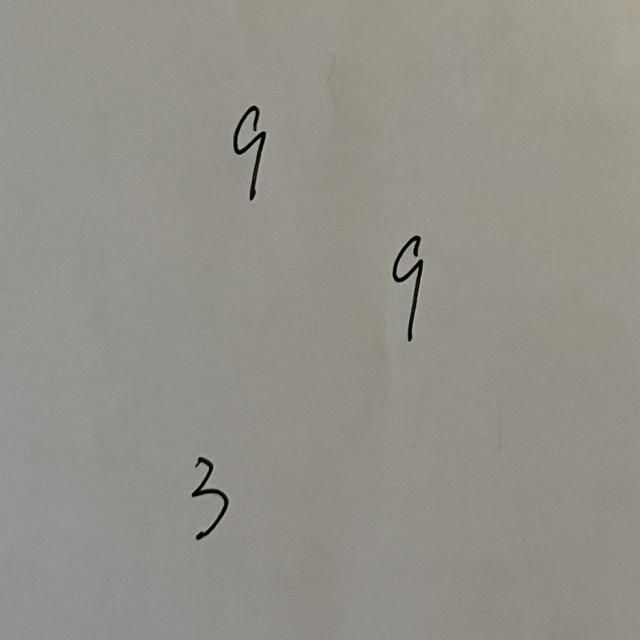 9
9
3